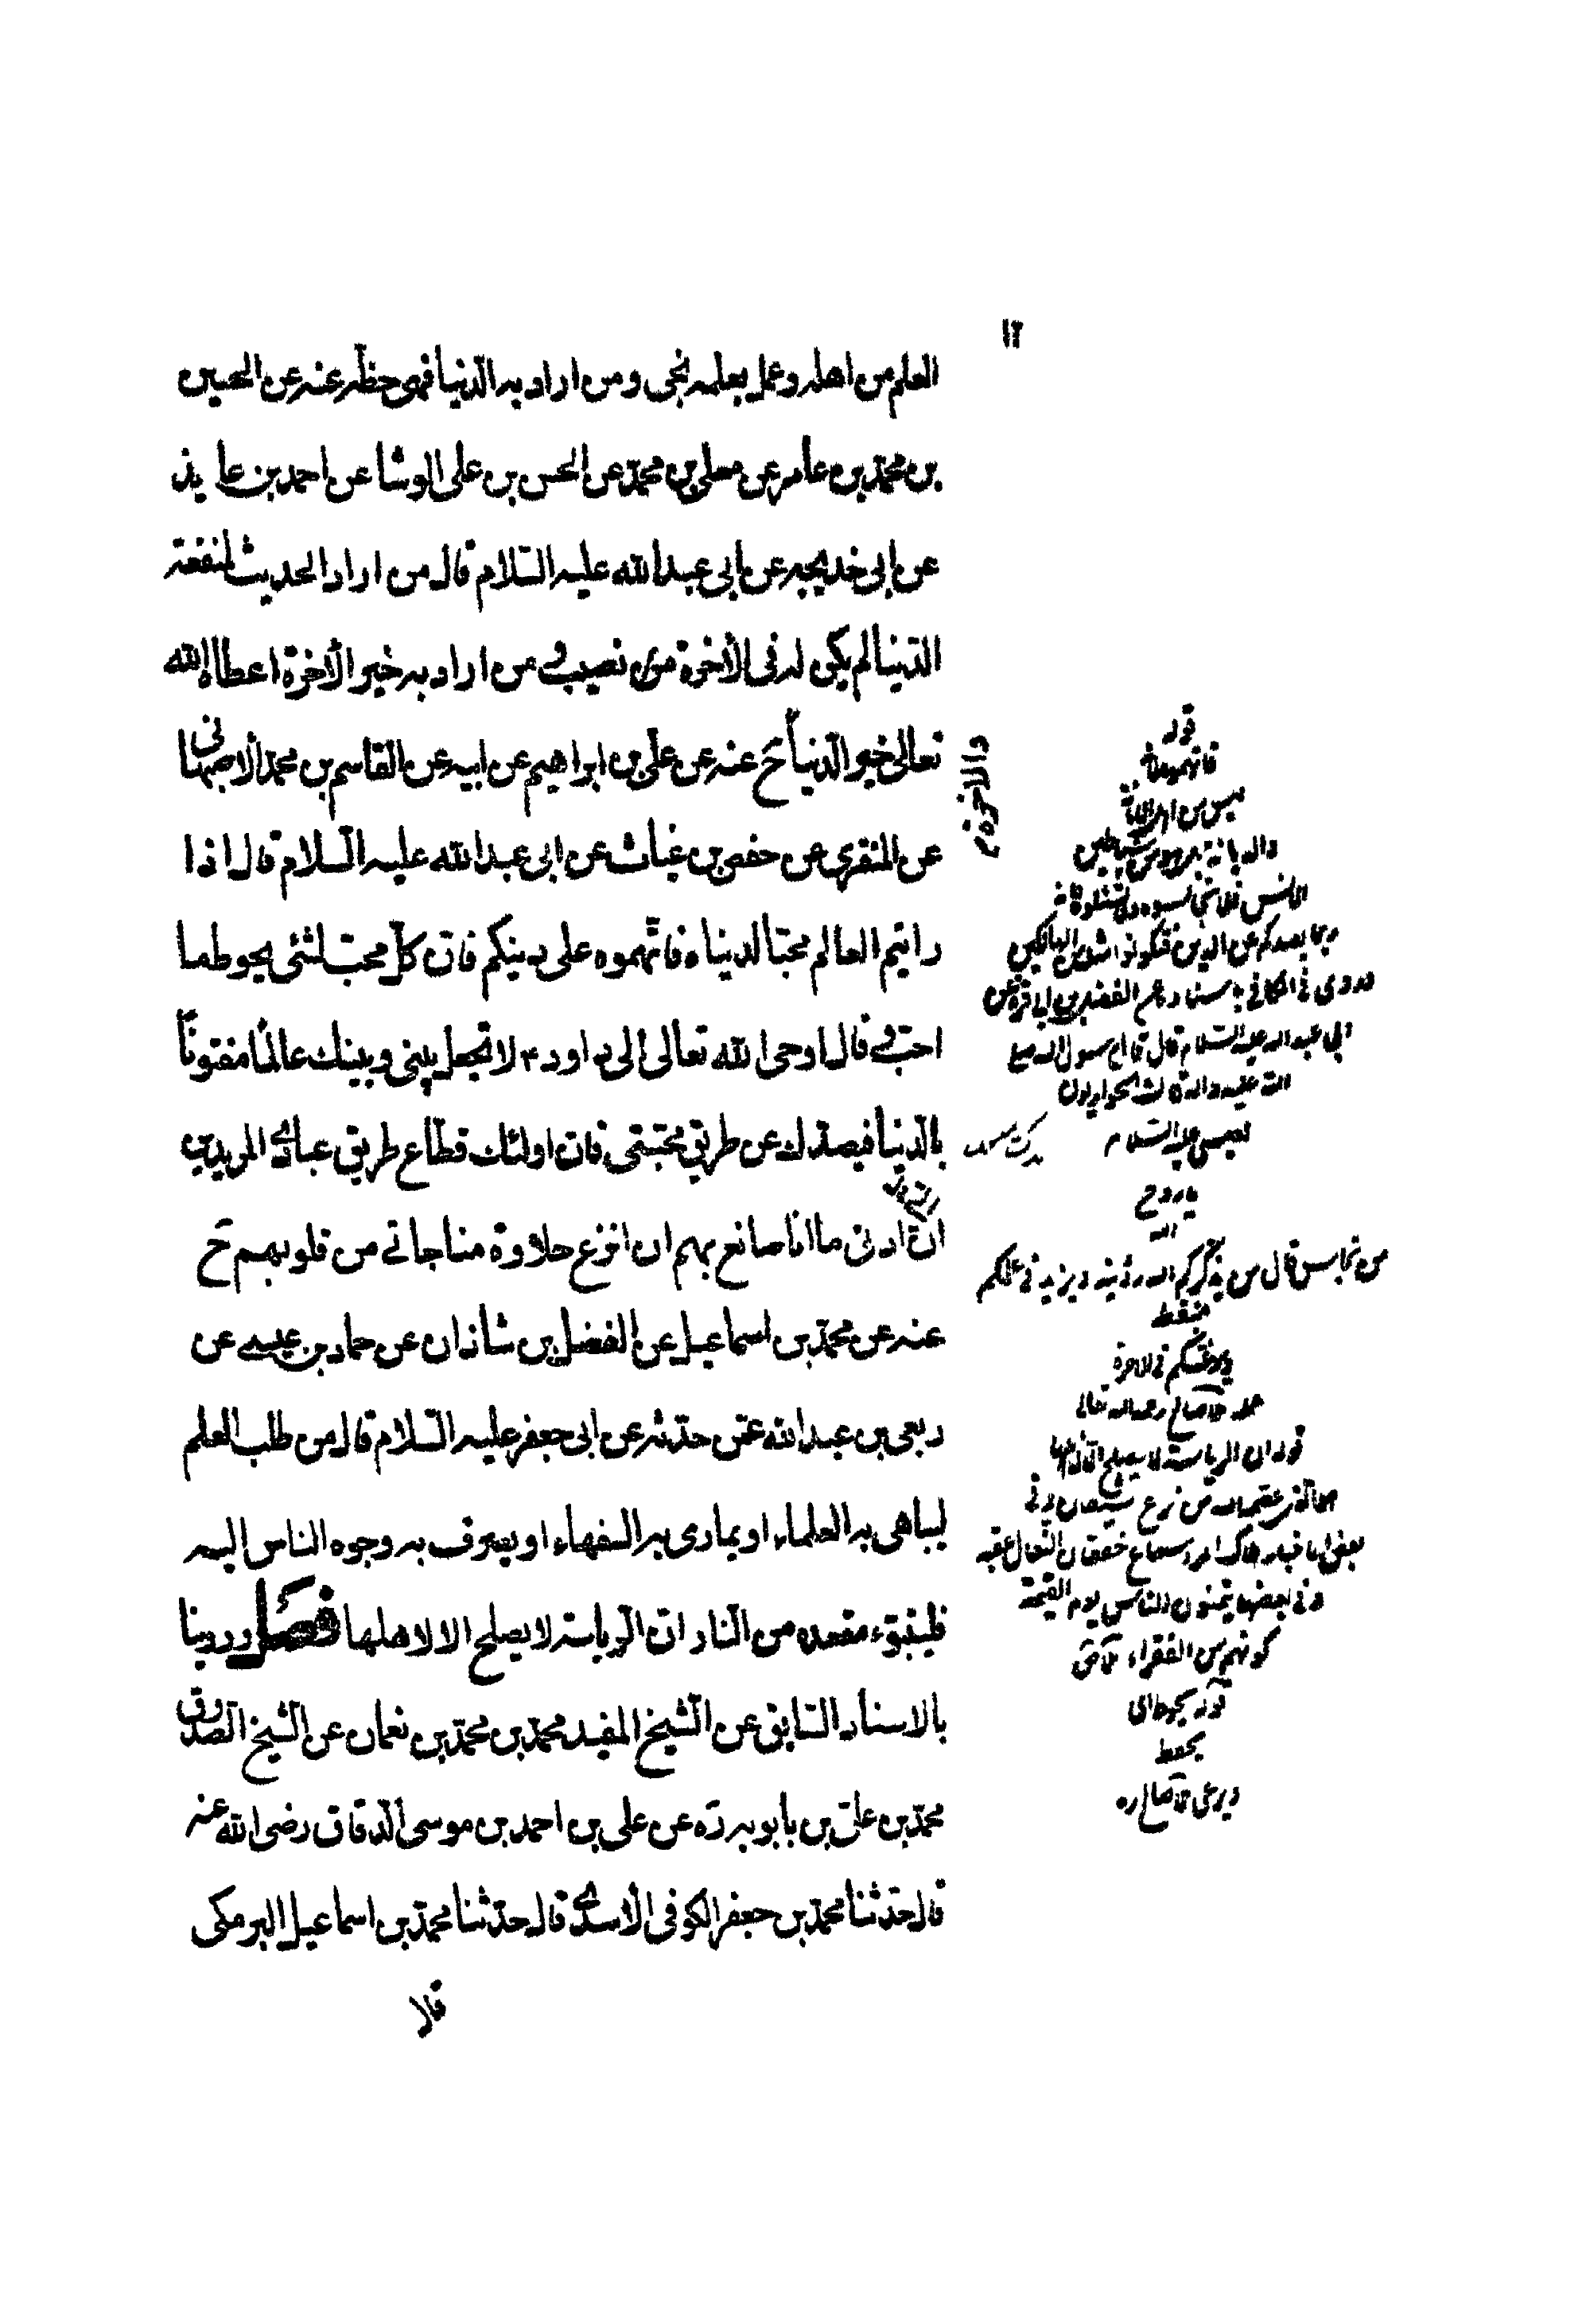 ١٢
العلم من اهله وعمل بعلمه نجى ومن اراد به الدّنيا فهى حظّه عنه عن الحسين
بن محمّد بن عامر عن معلى بن محمّد عن الحسن بن على الوشا عن احمد بن عايذ
عن ابى خديجه عن ابى عبد الله عليه السّلام قال من اراد الحديث لمنفعة
الدّنيا لم يكن له فى الأخرة من نصيب و من اراد به خير الأخرة اعطاه الله
تعالى خير الدّنيا ح عنه عن علىّ بن ابراهيم عن ابيه عن القاسم بن محمد الاصبهانى
والاخرة م
عن المنقرى عن حفص بن غياث عن ابى عبد الله عليه السّلام قال اذا
رايتم العالم محبّا لدنياه فاتّهموه على دينكم فان كلّ محبّ لشئى يحوط ما
احبّ و قال اوحى الله تعالى الى داود ٤ لا تجعل بينى وبينك عالمًا مفتونًا
بالدّنيا فيصدّك عن طريق محبّتى فان اولئك قطّاع طريق عبادى المريدين
انّ ادنى ما انا صانع بهم ان انزع حلاوة مناجاتى من قلوبهم ح
عنه عن محمّد بن اسماعيل عن الفضل بن شاذان عن حماد بن عيسى عن
ربعى بن عبد الله عمّن حدّثه عن ابى جعفر عليه السّلام قال من طلب العلم
ليباهى به العلماء او يمارى به السفهاء او يصرف به وجوه الناس اليه
فليتبوّء مقعده من النّار انّ الرّياسة لا يصلح الا لاهلها فصل روينا
بالاسناد السّابق عن الشّيخ المفيد محمّد بن محمّد بن نعمان عن الشّيخ الصّدوق
محمّد بن علىّ بن بابويه ره عن على بن احمد بن موسى الدّقاق رضى الله عنه
قال حدّثنا محمّد بن جعفر الكوفى الأسدى قال حدّثنا محمّد بن اسماعيل البرمكى
قلا
قوله
فاتهموه
ليس من اهل
الانس فلا
ربما يصدكم عن الدين فتكونوا من الهالكين
وروى فى الكافى باسناده عن الفضل بن ابى قرة عن
ابى عبد الله عليه السّلام قال قال رسول الله صلى
الله عليه واله قالت الحواريون
لعيسى عليه السّلام
يا روح
الله
من نجالس قال من يذكركم الله رؤيته ويزيد فى علمكم
منطقه
ويرغبكم فى الاخرة
صالح رحمه الله تعالى
قوله ان الرياسة لا يصلح الا لاهلها
وفى بعضها يتمنون الناس يوم القيمة
كونهم من الفقراء
قوله يحوط اى
يحفظ
ويرعى صالح ره